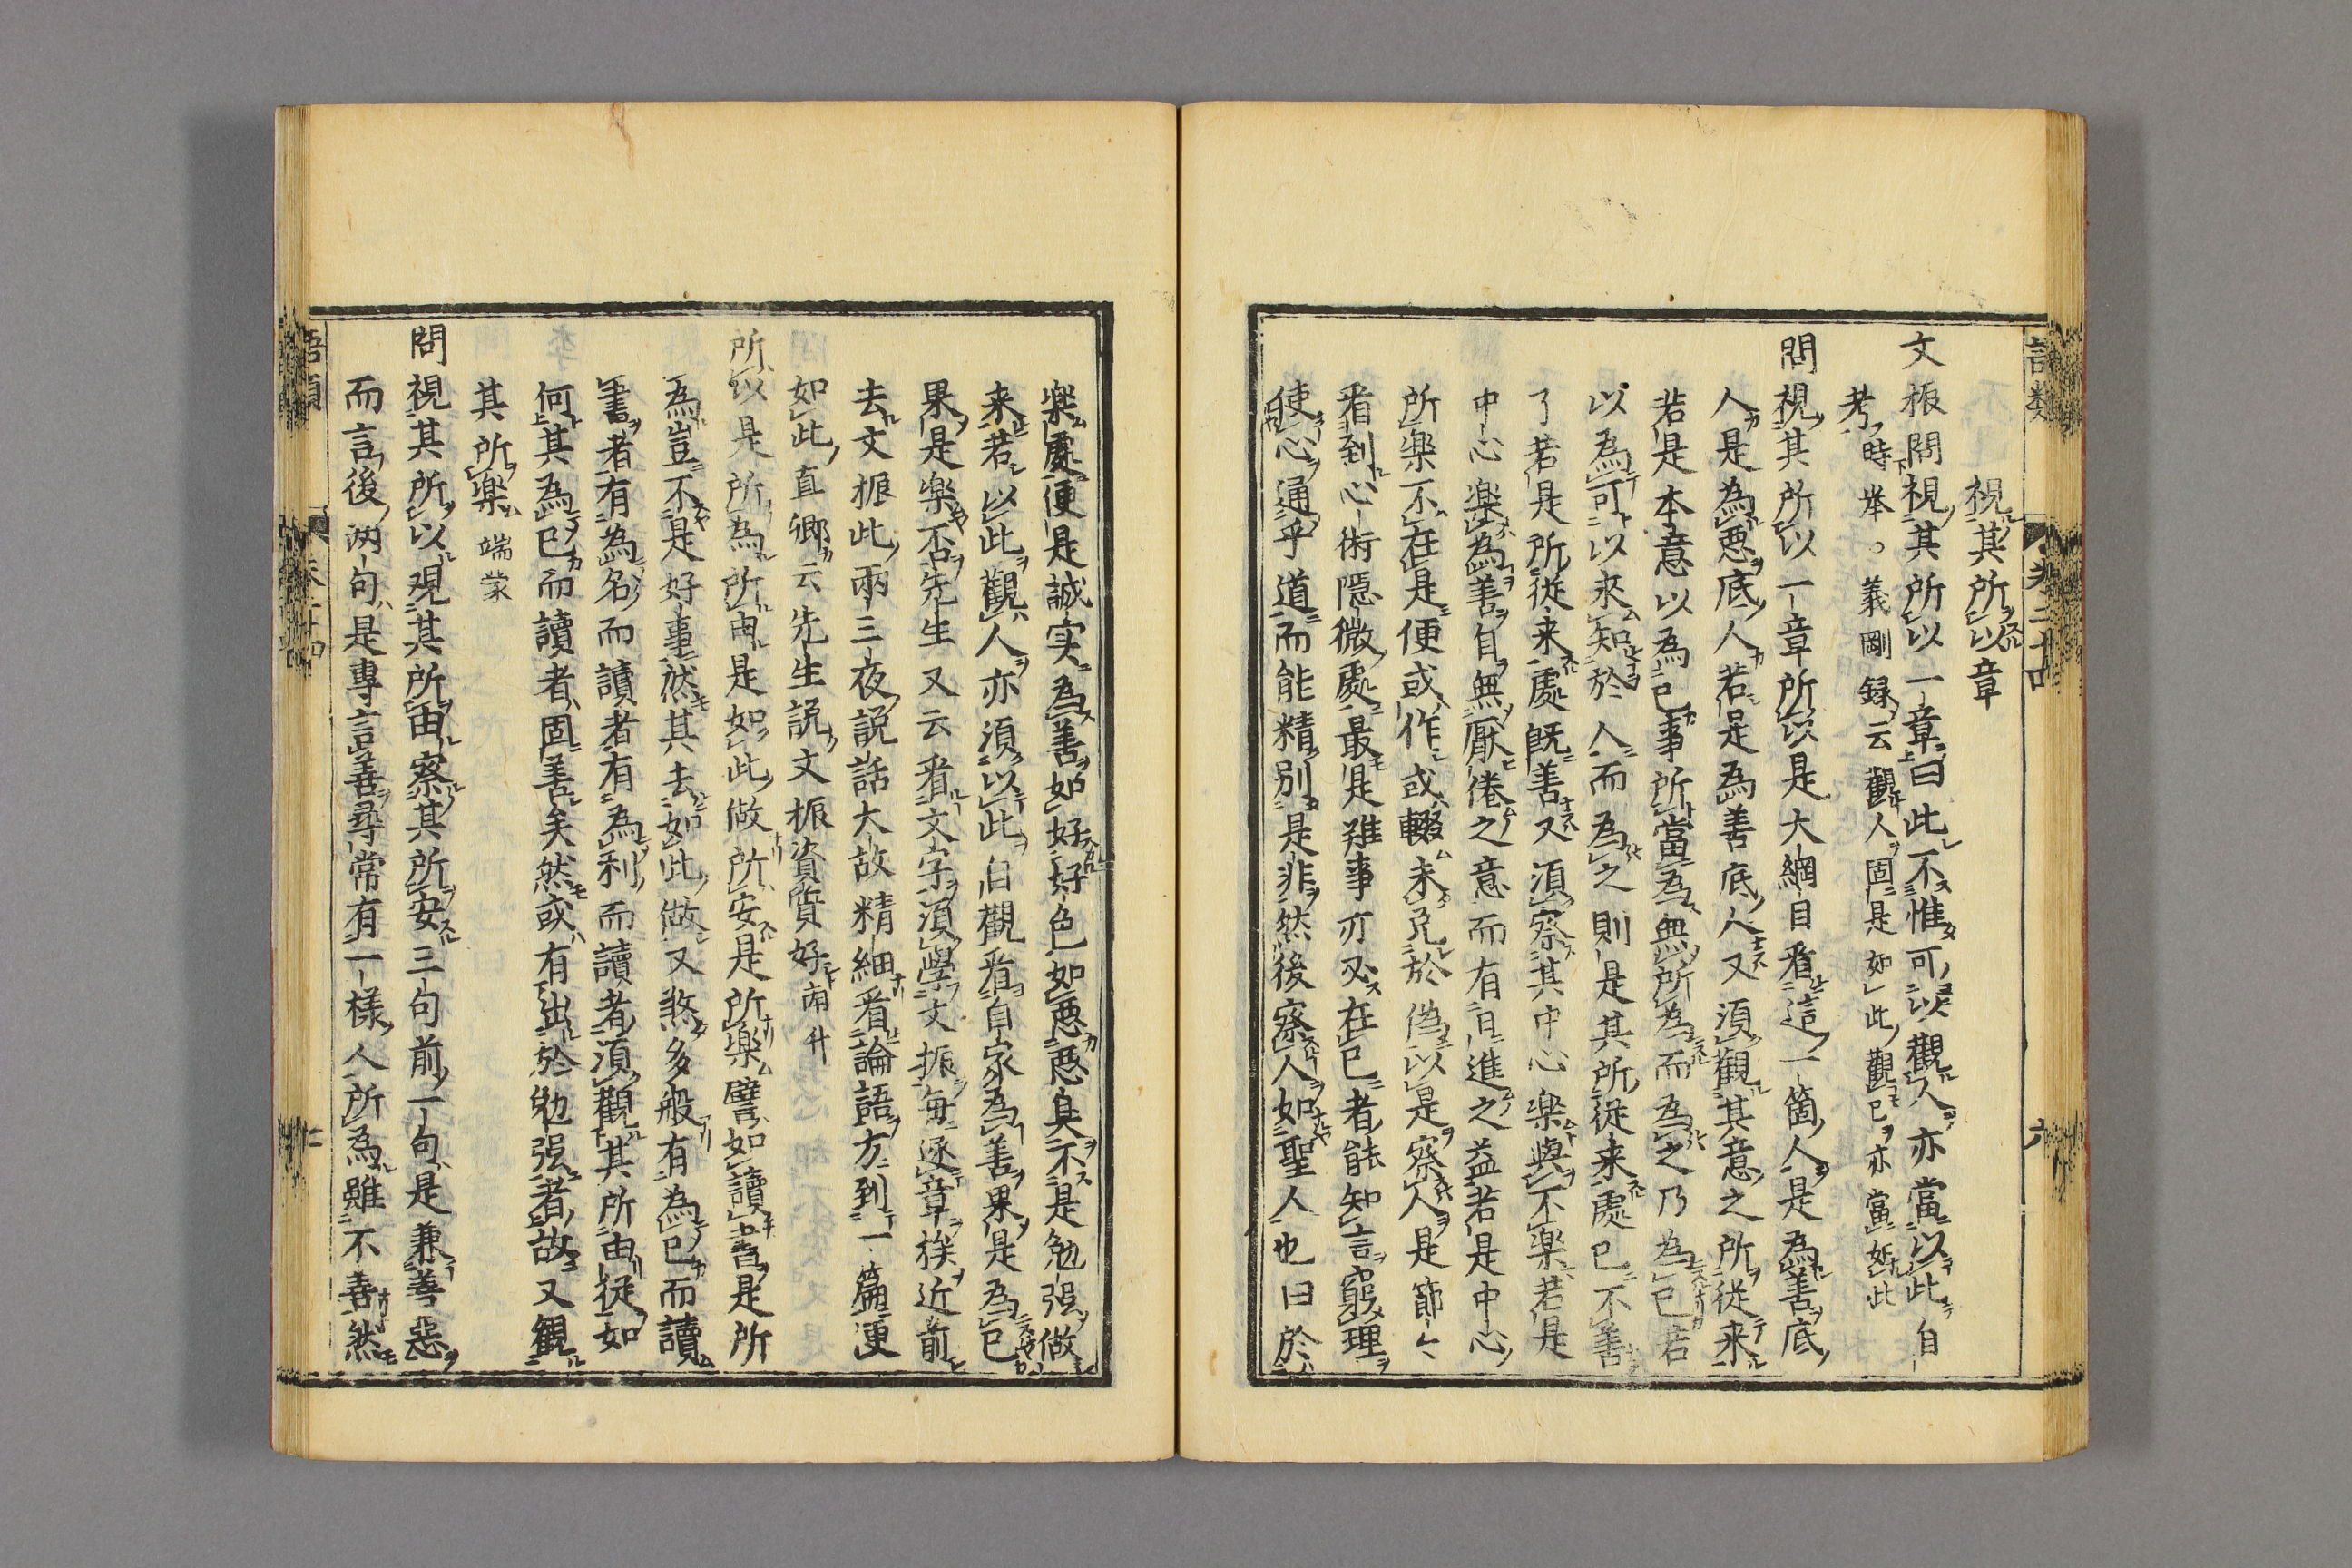 視其所以章
文振問視其所以一章曰此不惟可以觀人亦當以此自
考時挙。義剛録云觀人固是如此觀己亦當如此
問視其所以一章所以是大綱目看這一箇人是為善底
人是為悪底人若是為善底人又須觀其意之所従来
若是本意以為己事所當為無所為而為之乃為己若
以為可以求知於人而為之則是其所従来處已不善
了若是所従来處既善又須察其中心楽與不楽若是
中心楽為善自無厭倦之意而有日進之益若是中心
所楽不在是便或作或輟未免於偽以是察人是節々
看到心術隠微處最是難事亦必在己者能知言窮理
使心通乎道而能精別是非然後察人如聖人也曰於
楽處便是誠実為善如好好色如悪悪臭不是勉强做
来若以此觀人亦須以此自觀看自家為善果是為己
果是楽否先生又云看文字須學文振毎逐章挨近前
去文振此兩三夜説話大故精細看論語方到一篇便
如此直卿云先生説文振資質好南升
所以是所為所由是如此做所安是所楽譬如讀書是所
為豈不是好事然其去如此做又煞多般有為己而讀
書者有為名而讀者有為利而讀者須觀其所由従如
何其為己而讀者固善矣然或有出於勉强者故又観
其所楽端蒙
問視其所以観其所由察其所安三句前一句是兼善惡
而言後両句是專言善尋常有一樣人所為雖不善然